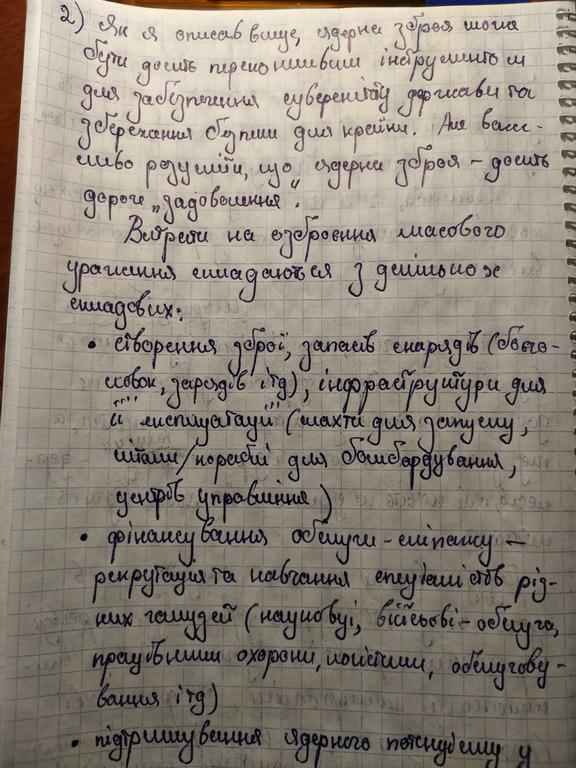 2) Як я описав вище, ядерна зброя може
бути досить переконливим інструментом
для забезпечення суверенітету держави та
збереження безпеки для країни. Але важ-
ливо розуміти, що ядерна зброя - досить
дороге „задоволення".
Витрати на озброєння масового
ураження складаються з декількох
складових:
• створення зброї, запасів снарядів (боєго-
ловок, зарядів ітд), інфраструктури для
її експлуатації (шахти для запуску,
літаки/кораблі для бомбардування,
центрів управління)
• фінансування обслуги-екіпажу -
рекрутація та навчання спеціалістів різ-
них галузей (науковці, військові-обслуга,
працівники охорони, логістики, обслугову-
вання ітд)
• підтримування ядерного потенціалу у